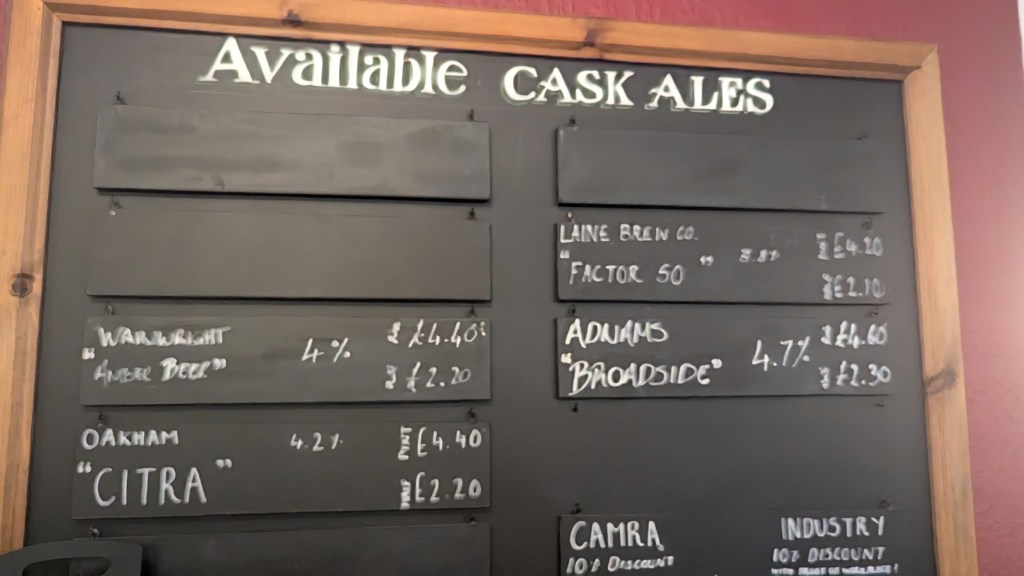 Available CASK ALES
WAINWRIGHT
"AMBER BEER" 4% £4.40
£2.20
OAKHAM 4.2% PINT £4.40
"CITRA" HALF £2.20
LAINE BREW CO. £4.20
"FACTOR 50" £2.10
ADNAMS £4.60
"BROADSIDE" 4.7% £2.30
CAMRA
10% DISCOUNT
INDUSTRY
10% DISCOUNT